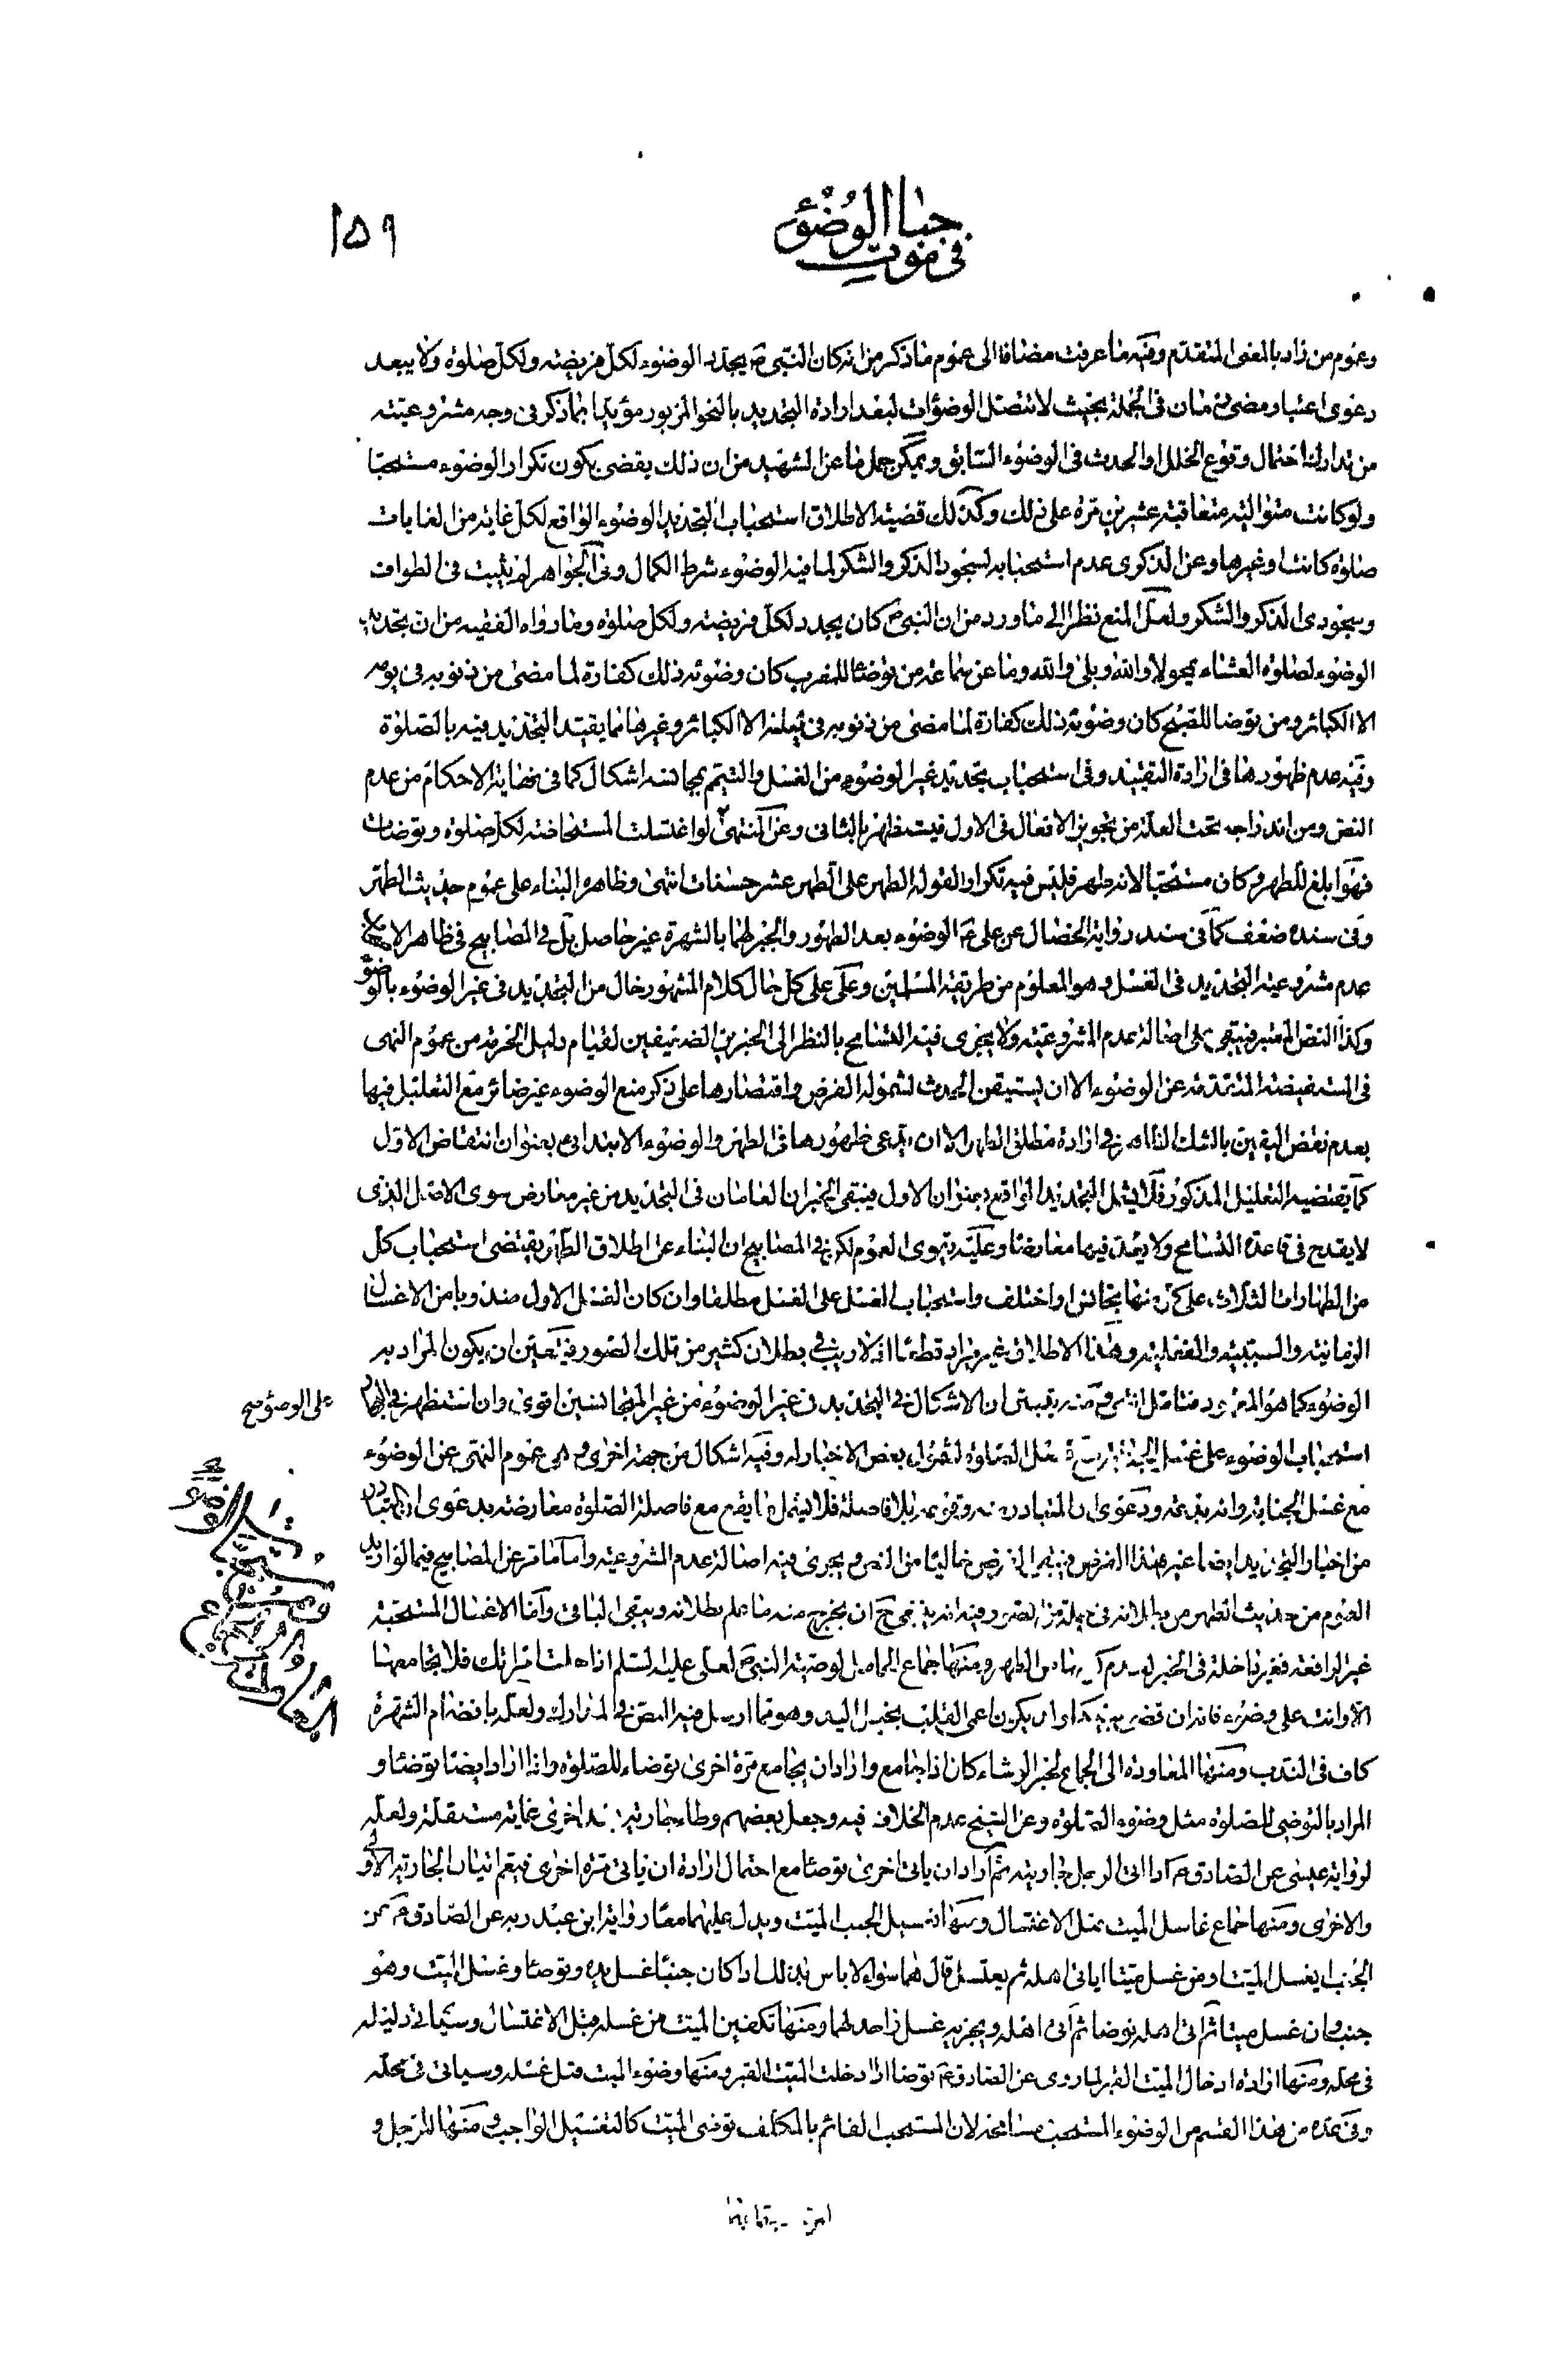 في موجبات الوضوء
١٥٩
وعموم من زاد بالمعنى المتقدم وفيه ما عرفت مضافا الى عموم ما ذكر من انه كان النبي ص يجدد الوضوء لكل فريضة ولكل صلوة ولا يبعد
دعوى اعتبار مضى زمان في الجملة بحيث لا تتصل الوضوآت لبعد ارادة التجديد بالنحو المزبور مؤيدا بما ذكر في وجه مشروعيته
من تدارك احتمال وقوع الخلل او الحدث في الوضوء السابق ويمكن حمل ما عن الشهيد من ان ذلك يقضى بكون تكرار الوضوء مستحبا
ولو كانت متوالية متعاقبة عشرين مرة على ذلك وكذلك قضية الاطلاق استحباب التجديد الوضوء الواقع لكل غاية من الغايات
صلوة كانت او غيرها وعن الذكرى عدم استحبابه لسجود الذكر والشكر لما فيه الوضوء شرط الكمال وفي الجواهر لم يثبت في الطواف
وسجودى الذكر والشكر ولعل المنع نظرا الى ما ورد من ان النبي ص كان يجدد لكل فريضة ولكل صلوة وما رواه الفقيه من ان تجديد
الوضوء لصلوة العشاء يمحو لا والله وبلى والله وما عن سماعة من توضأ للمغرب كان وضوئه ذلك كفارة لما مضى من ذنوبه في يومه
الا الكبائر ومن توضا للصبح كان وضوئه ذلك كفارة لما مضى من ذنوبه في ليلته الا الكبائر وغيرها مما يقيد التجديد فيه بالصلوة
وفيه عدم ظهورها في ارادة التقييد وفي استحباب تجديد غير الوضوء من الغسل والتيمم بمجانسه اشكال كما في نهاية الاحكام من عدم
النص ومن اندراجه تحت العلة من تجويز الاغفال في الاول فيستظهر بالثاني وعن المنتهى لو اغتسلت المستحاضة لكل صلوة وتوضات
فهو ابلغ للطهر و كان مستحبا لانه طهر فليس فيه تكرار لقوله الطهر على الطهر عشر حسنات انتهى وظاهره البناء على عموم حديث الطهر
وفي سنده ضعف كما في سند رواية الخصال عن علي ع الوضوء بعد الطهور والجبر لهما بالشهرة غير حاصل بل في المصابيح في ظاهر الاصحاب
عدم مشروعية التجديد في الغسل وهو المعلوم من طريقة المسلمين وعلى كل حال كلام المشهور خال من التجديد في غير الوضوء بالوضوء
وكذا النص المعتبر فيبقى على اصالة عدم المشروعية ولا يجزى فيه التسامح بالنظر الى الخبرين الضعيفين لقيام دليل الحرمة من عموم النهى
في المستفيضة المتقدمة عن الوضوء الا ان يستيقن الحدث لشموله الفرض واقتصارها على ذكر منع الوضوء غير ضائر مع التعليل فيها
بعدم نقض اليقين بالشك الظاهر في ارادة مطلق الطهر الا ان يدعى ظهورها في الطهر والوضوء الابتدائي بعنوان انتقاض الاول
كما يقتضيه التعليل المذكور فلا يشمل التجديد الواقع بعنوان الاول فيبقى الخبران العامان في التجديد من غير معارض سوى الاصل الذى
لا يقدح في قاعدة التسامح ولا يعد فيها معارضا وعليه يقوى العموم لكن في المصابيح ان البناء على اطلاق الطهر يقتضى استحباب كل
من الطهارات الثلاث على كل منها تجانس او اختلف واستحباب الغسل على الغسل مطلقا وان كان الغسل الاول مندوبا من الاغسال
الزمانية والسببية والفعلية وهذا الاطلاق غير مراد قطعا اذ لا ريب في بطلان كثير من تلك الصور فيتعين ان يكون المراد به
الوضوء كما هو المعهود فتامل انتهى و منه يتبين ان الاشكال في التجديد في غير الوضوء من غير المتجانسين اقوى وان استظهر في
على الوضوء صح
استحباب الوضوء على غسل الجنابة قبل الصلوة لشمول بعض الاخبار له وفيه اشكال من جهة اخرى و هى عموم النهى عن الوضوء
مع غسل الجنابة وانه بدعة ودعوى ان المتبادر منه وقوعه بلا فاصلة فلا يشمل ما يقع مع فاصلة الصلوة معارضة بدعوى ان المتبادر
من اخبار التجديد ايضا غير هذا الفرض فيبقى الفرض خاليا من النص ويجرى فيه اصالة عدم المشروعية واما ما مر عن المصابيح فيما لو اريد
العموم من حديث الطهر من بطلانه في جملة من الصور وفيه انه ينبغي ح ان يخرج منه ما علم بطلانه ويبقى الباقى واما الاغسال المستحبة
غير الرافعة فغير داخلة في الخبر لعدم كونها من الطهر ومنها جماع الحامل لوصية النبي ص لعلي عليه السلم اذا حملت امراتك فلا تجامعها
الا وانت على وضوء فانه ان قضى بينكما ولد يكون اعمى القلب بخيل اليد وهو مما ارسل فيه النص في المدارك ولعله بانضمام الشهرة
كاف في الندب ومنها المعاودة الى الجماع لخبر الوشاء كان اذا جامع واراد ان يجامع مرة اخرى توضاء للصلوة واذا اراد ايضا توضئا و
المراد بالتوضى للصلوة مثل وضوء الصلوة وعن الشيخ عدم الخلاف فيه وجعل بعضهم وطاء جارية بعد اخرى غاية مستقلة ولعله
لرواية عيسى عن الصادق ع اذا اتى الرجل جاريته ثم اراد ان ياتى اخرى توضأ مع احتمال ارادة ان ياتى مرة اخرى فيعم اتيان الجارية الاولى
والاخرى ومنها جماع غاسل الميت قبل الاغتسال ومنها تغسيل الجنب الميت ويدل عليهما معا رواية ابن عبد ربه عن الصادق ع عن
الجنب ايغسل الميت او من غسل ميتا اياتى اهله ثم يغتسل قال هما سواء لا باس بذلك اذا كان جنبا غسل يده وتوضأ وغسل الميت وهو
جنب وان غسل ميتا ثم اتى اهله توضا ثم اتى اهله ويجزيه غسل واحد لهما ومنها تكفين الميت من غسله قبل الاغتسال وسياتي دليله
في محله ومنها ارادة ادخال الميت القبر لما روى عن الصادق ع توضا اذا دخلت الميت القبر ومنها وضوء الميت قبل غسله وسياتي في محله
وفي عده من هذا القسم من الوضوء المستحب مسامحة لان المستحب القائم بالمكلف توضى الميت كالتغسيل الواجب ومنها للرجل و